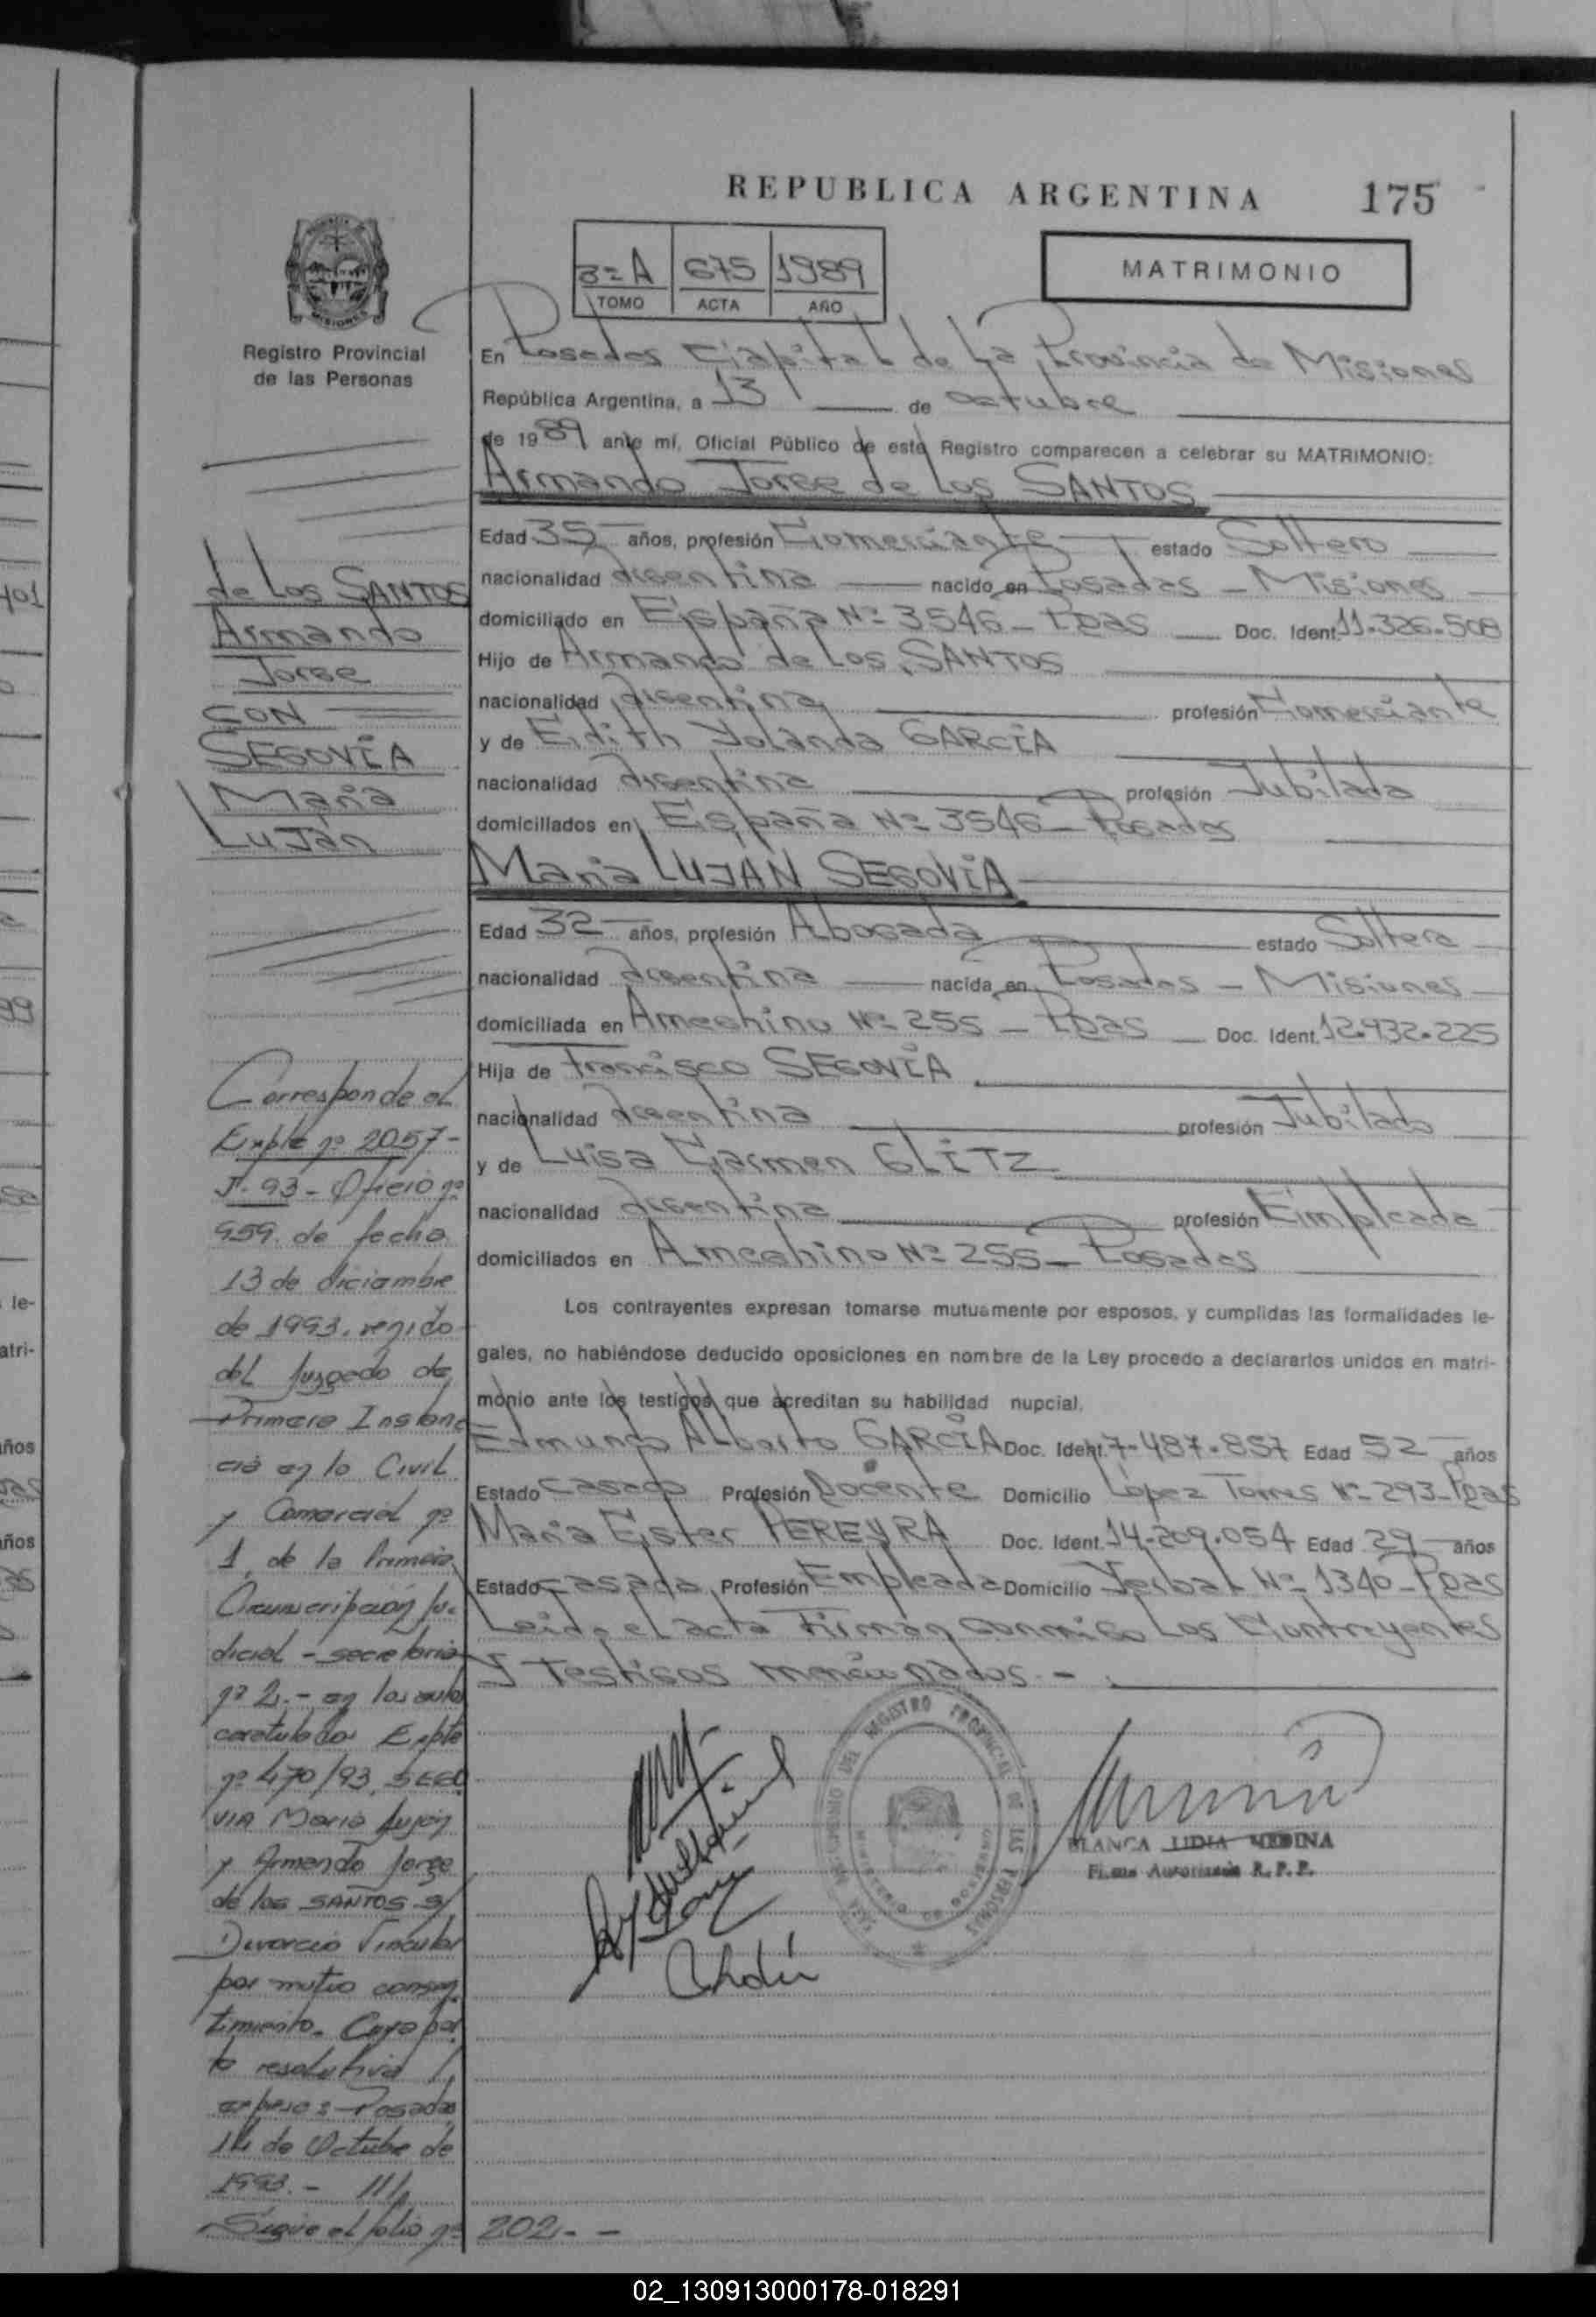 REPUBLICA ARGENTINA 175
3=A 675 1989
TOMO ACTA AÑO
MATRIMONIO
MISIONES
Registro Provincial
de las Personas
En Posadas Capital de La Provincia de Misiones
República Argentina, a 13 de octubre
de 1989 ante mí, Oficial Público de este Registro comparecen a celebrar su MATRIMONIO:
Armando Jorge de Los SANTOS
Edad 35 años, profesión Comerciante estado Soltero
nacionalidad argentina nacido en Posadas - Misiones
domiciliado en España Nº 3546 - Pdas Doc. Ident. 11.326.508
Hijo de Armando de Los SANTOS
nacionalidad argentina profesión Comerciante
y de Edith Yolanda GARCÍA
nacionalidad argentina profesión Jubilada
domiciliados en España Nº 3546 - Posadas
María LUJAN SEGOVIA
Edad 32 años, profesión Abogada estado Soltera
nacionalidad argentina nacida en Posadas - Misiones
domiciliada en Ameghino Nº 255 - Pdas Doc. Ident. 12.932.225
Hija de Francisco SEGOVIA
nacionalidad argentina profesión Jubilado
y de Luisa Carmen GLITZ
nacionalidad argentina profesión Empleada
domiciliados en Ameghino Nº 255 - Posadas
Los contrayentes expresan tomarse mutuamente por esposos, y cumplidas las formalidades le-
gales, no habiéndose deducido oposiciones en nombre de la Ley procedo a declararlos unidos en matri-
monio ante los testigos que acreditan su habilidad nupcial.
Edmundo Alberto GARCÍA Doc. Ident. 7.487.857 Edad 52 años
Estado casado Profesión Docente Domicilio López Torres Nº 293 - Pdas
María Ester PEREYRA Doc. Ident. 14.209.054 Edad 29 años
Estado casada Profesión Empleada Domicilio Yerbal Nº 1340 - Pdas
Leida el acta Firman conmigo Los Contrayentes
Y Testigos mencionados.-
BLANCA LIDIA MEDINA
Firma Autorizada R. P. P.
de Los SANTOS
Armando
Jorge
CON
SEGOVIA
María
Luján
Corresponde al
Expte nº 2057-
J-93 - Oficio nº
959. de fecha
13 de diciembre
de 1993. venido
del Juzgado de
Primera Instan
cia en lo Civil
y Comercial nº
1, de la Primera
Circunscripción Ju-
dicial - secretaria
nº 2.- en los autos
caratulados Expte
nº 470/93, SEGO
VIA María Luján
y Armando Jorge
de los SANTOS s/
Divorcio Vincular
por mutuo consen
timiento. Cuya par
te resolutiva
expresa: Posadas,
14 de Octubre de
1993.- ///
Sigue al folio nº 202.--
401
99
le-
atri-
años
años
02_130913000178-018291